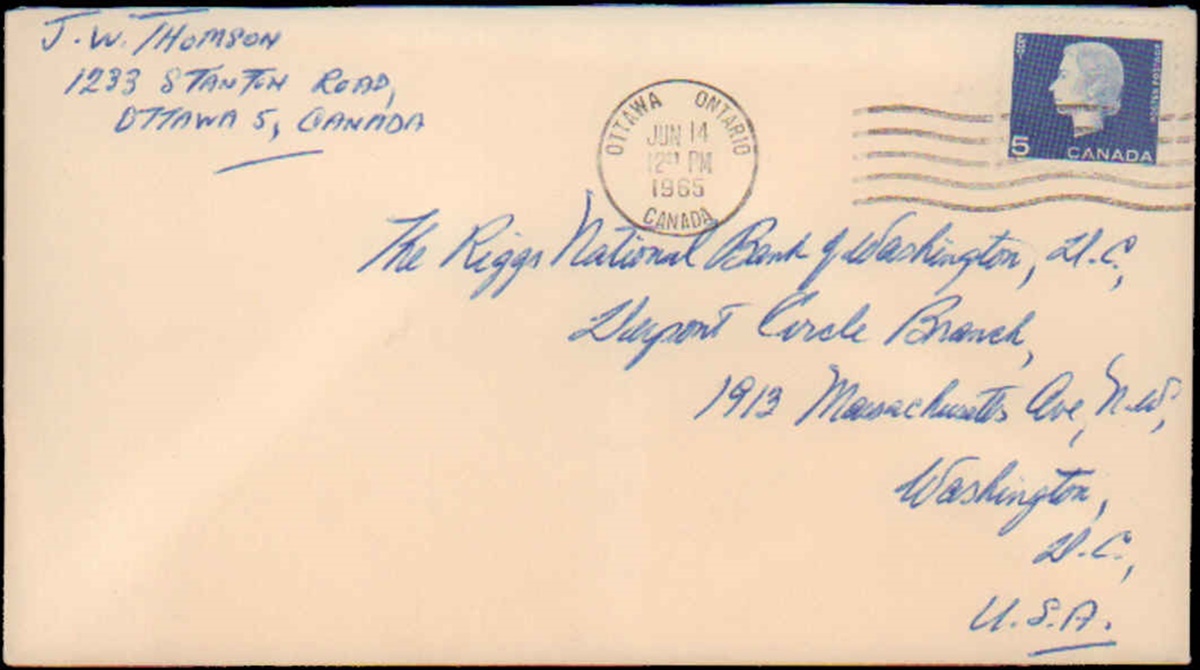 J. W. THOMSON
1233 STANTON ROAD,
OTTAWA 5, CANADA
OTTAWA ONTARIO
JUN 14
PM
1965
CANADA
5
CANADA
POSTES POSTAGE
The Riggs National Bank of Washington, D.C.,
Dupont Circle Branch,
1913 Massachusetts Ave, N.W,
Washington,
D.C.,
U.S.A.